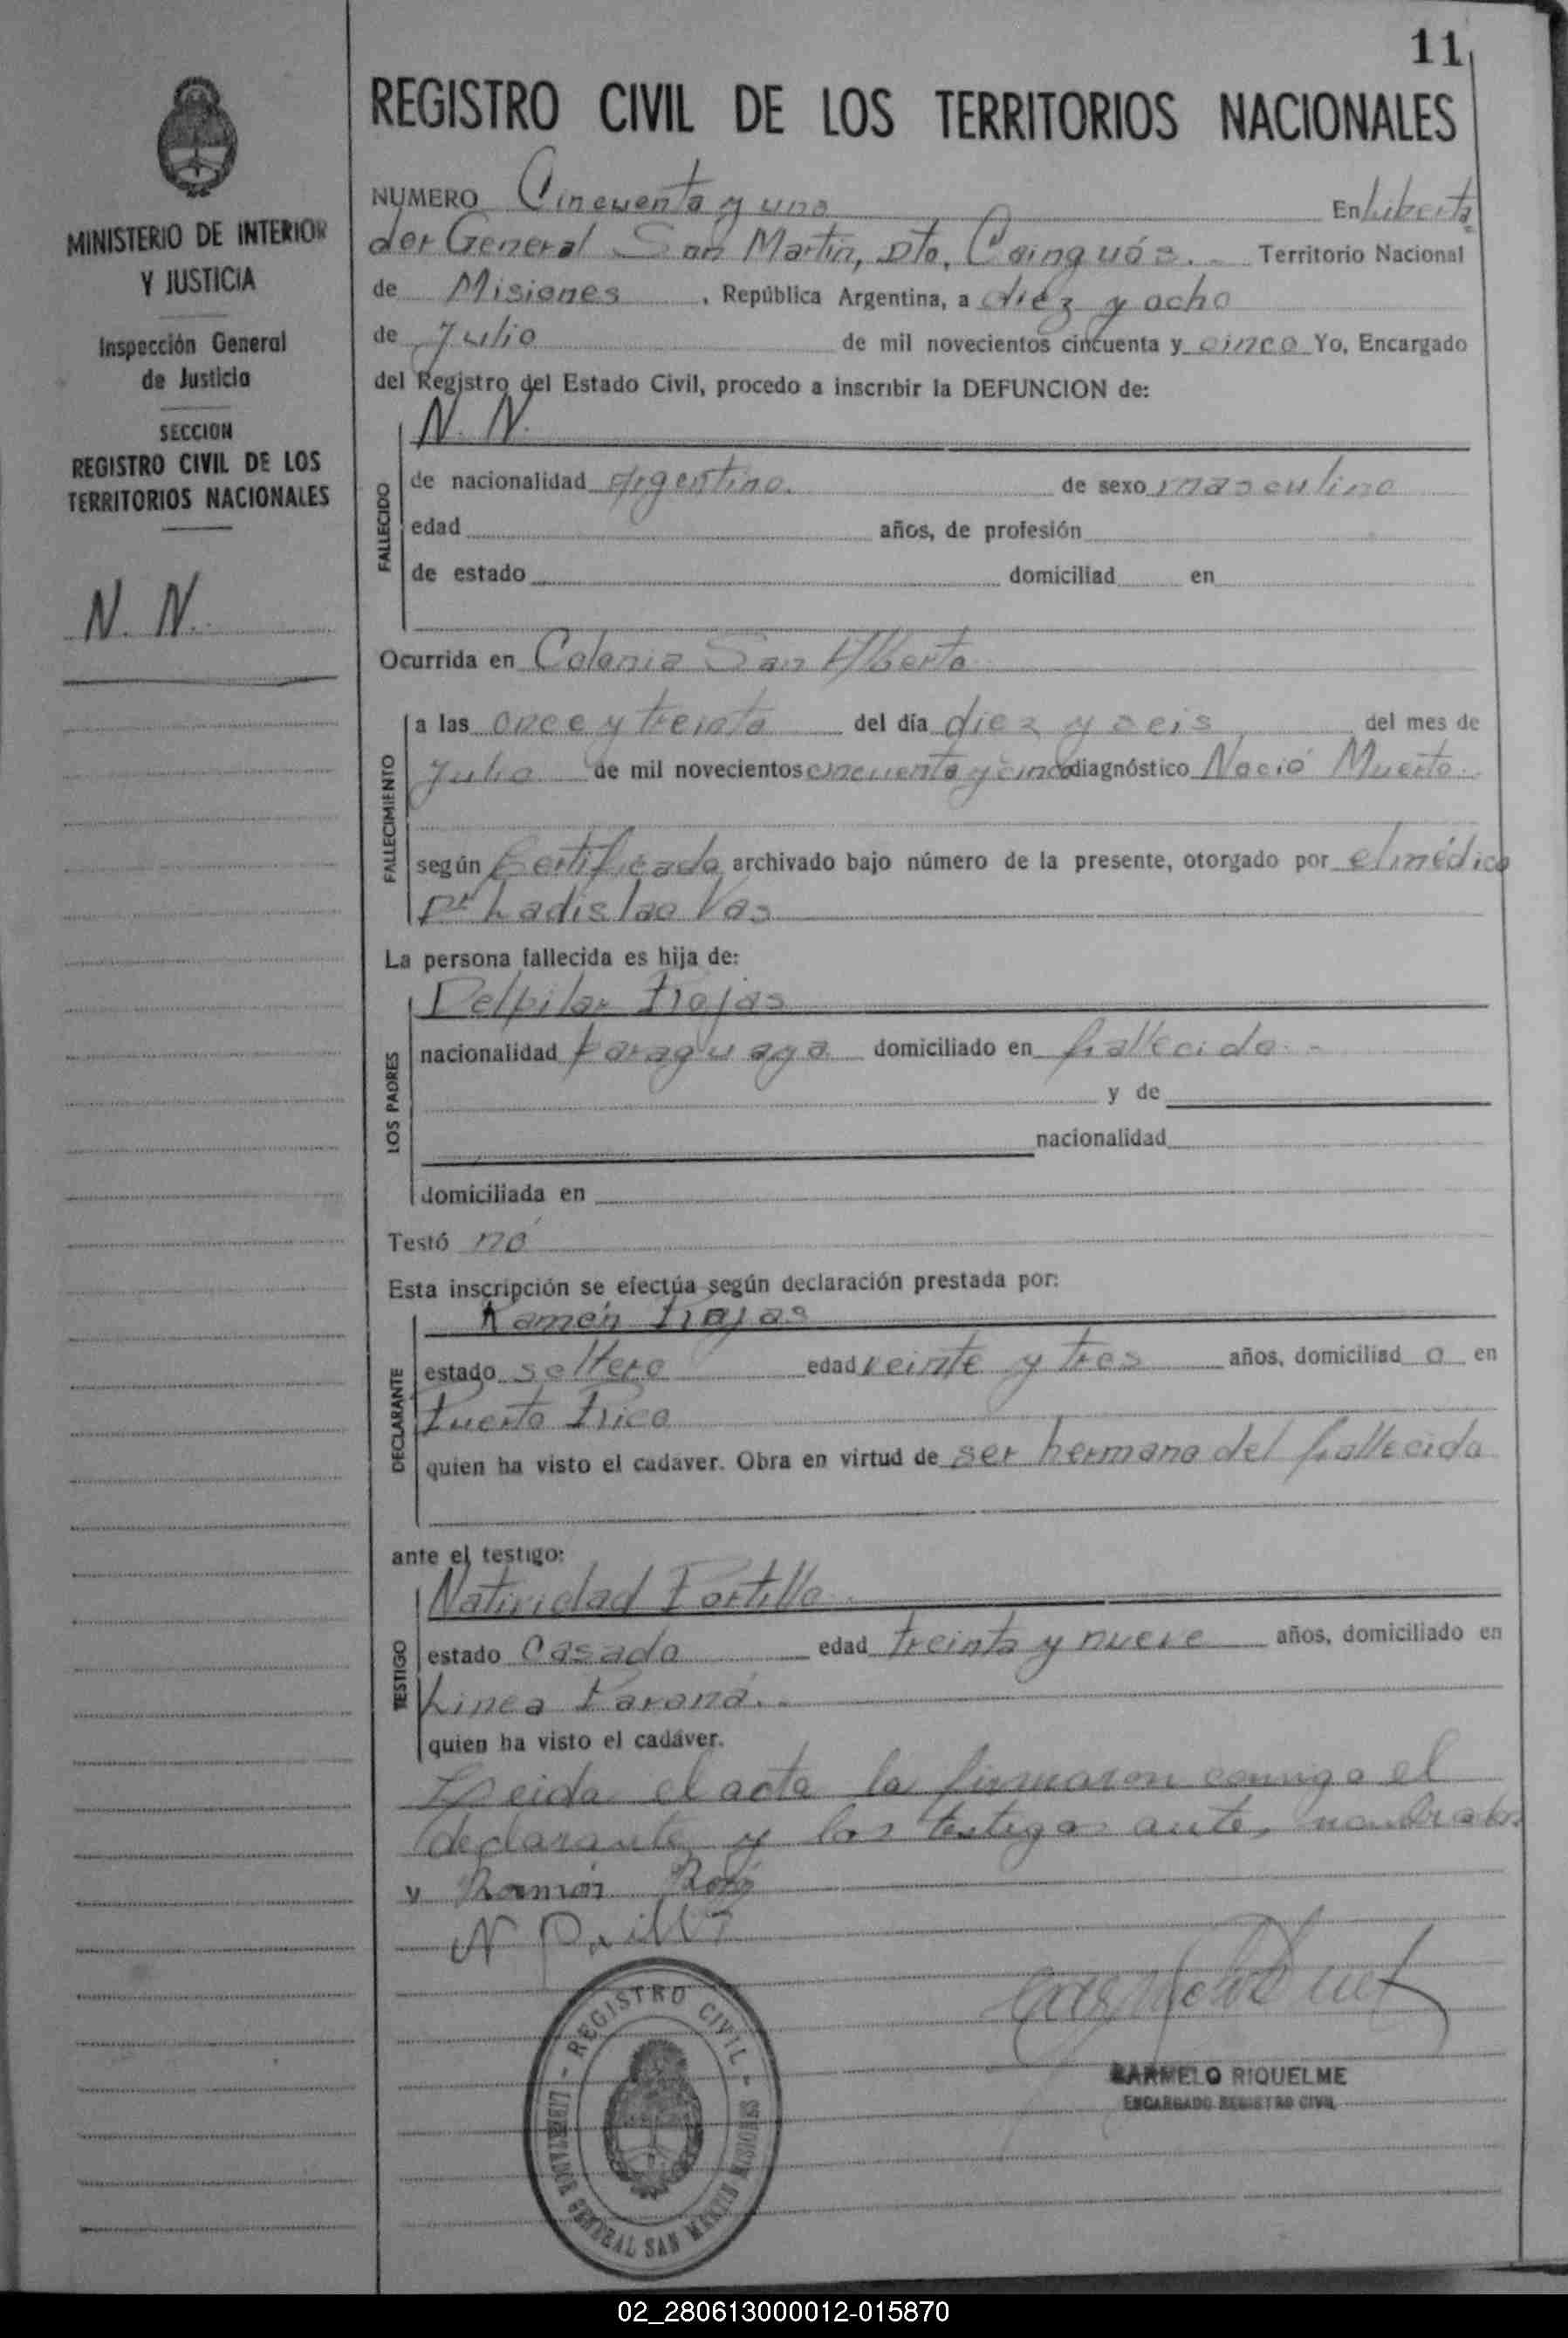 11
REGISTRO CIVIL DE LOS TERRITORIOS NACIONALES
MINISTERIO DE INTERIOR
Y JUSTICIA
Inspección General
de Justicia
SECCION
REGISTRO CIVIL DE LOS
TERRITORIOS NACIONALES
N. N.
NUMERO Cincuenta y uno En Liberta
dor General San Martín, Dto. Cainguás. - Territorio Nacional
de Misiones , República Argentina, a diez y ocho
de Julio de mil novecientos cincuenta y cinco Yo, Encargado
del Registro del Estado Civil, procedo a inscribir la DEFUNCION de:
N. N.
FALLECIDO
de nacionalidad Argentina. de sexo masculino
edad años, de profesión
de estado domiciliad en
Ocurrida en Colonia San Alberto
FALLECIMIENTO
a las once y treinta del día diez y seis del mes de
Julio de mil novecientos cincuenta y cinco diagnóstico Nació Muerto.
según Certificado archivado bajo número de la presente, otorgado por el médico
Dr Ladislao Vas
La persona fallecida es hija de:
LOS PADRES
Delpilar Rojas
nacionalidad Paraguaya domiciliado en fallecido. -
y de
nacionalidad
domiciliada en
Testó nó
Esta inscripción se efectúa según declaración prestada por:
DECLARANTE
Ramón Rojas
estado soltero edad veinte y tres años, domiciliad o en
Puerto Rico
quien ha visto el cadáver. Obra en virtud de ser hermano del fallecido
ante el testigo:
TESTIGO
Natividad Portillo
estado Casado edad treinta y nueve años, domiciliado en
Linea Paraná. -
quien ha visto el cadáver.
Leida el acta la firmaron conmigo el
declarante y los testigos ante, nombrados
Ramón
REGISTRO CIVIL - MISIONES
LIBERTADOR GENERAL SAN MARTIN
CARMELO RIQUELME
ENCARGADO REGISTRO CIVIL
02_280613000012-015870